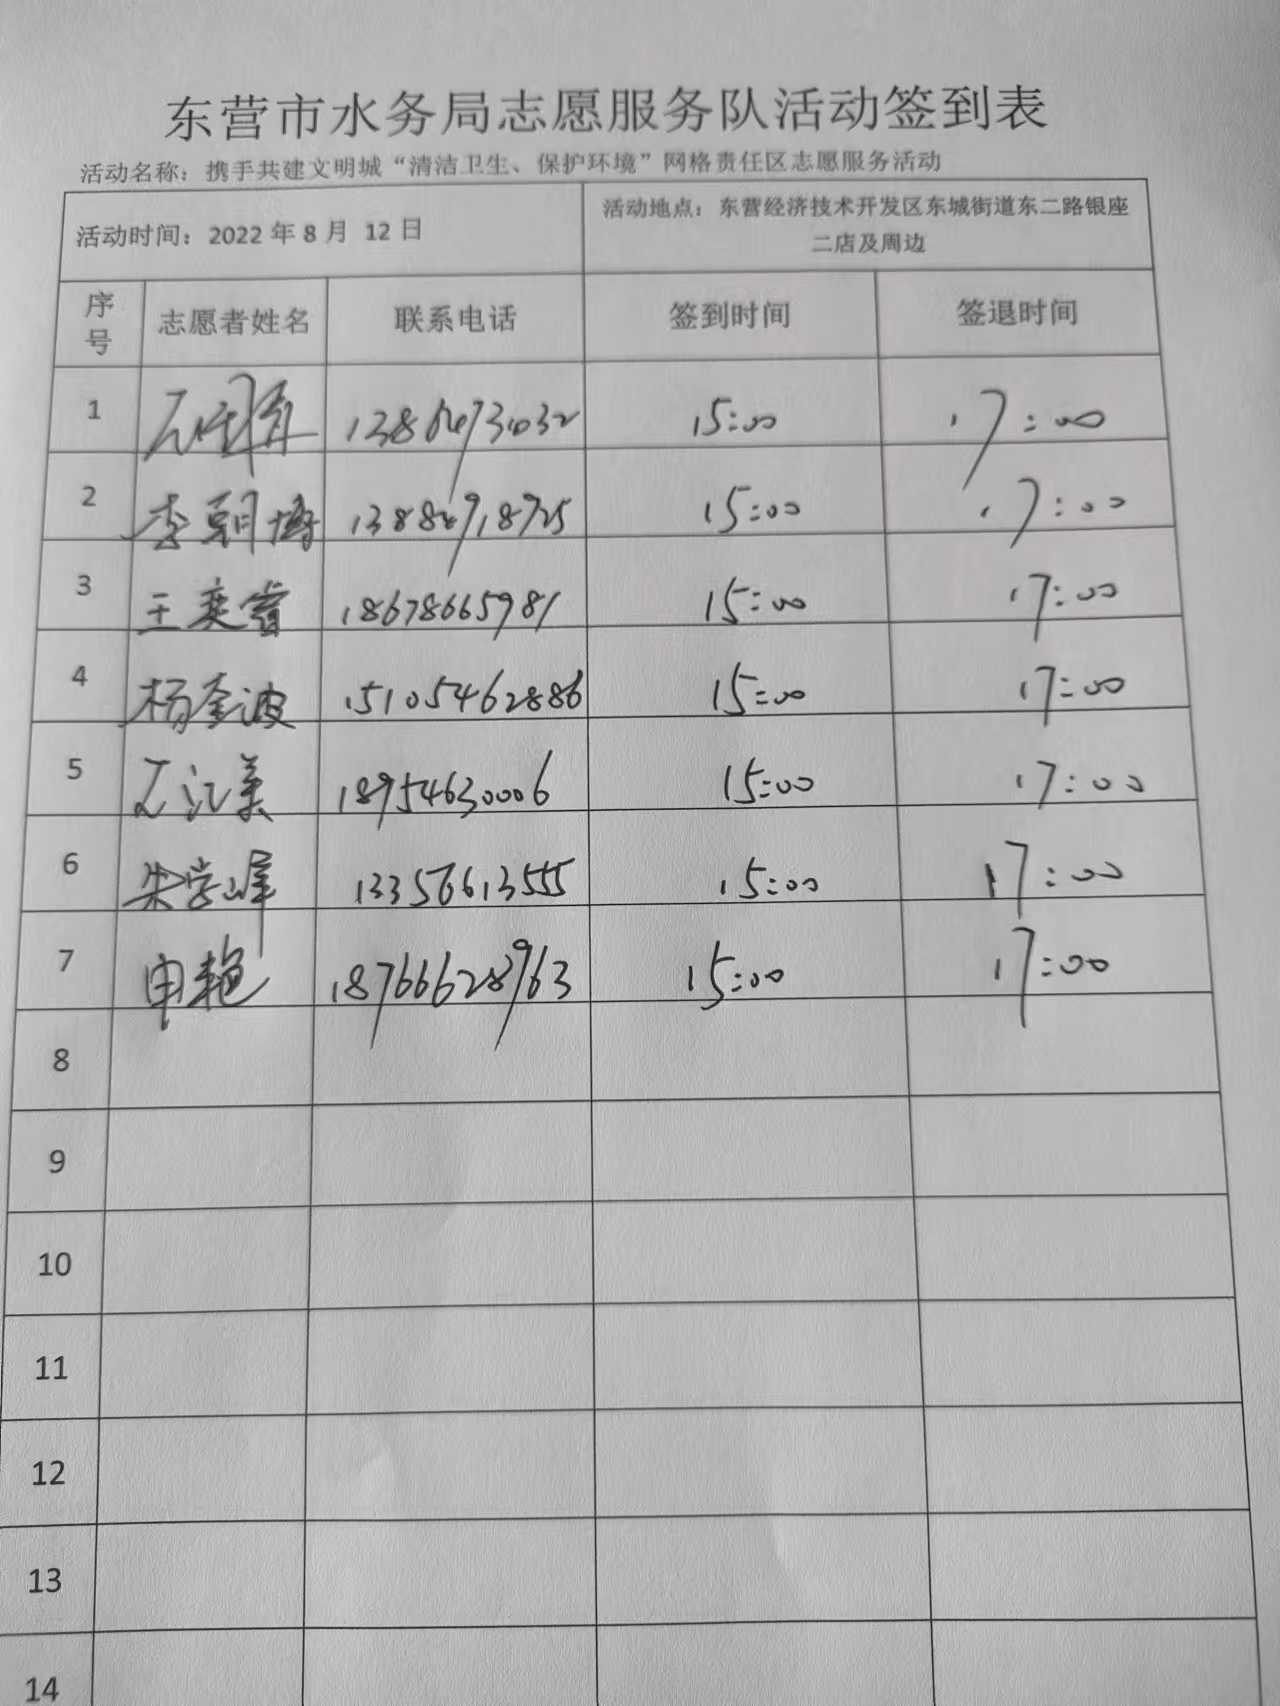 东营市水务局志愿服务队活动签到表
活动名称：携手共建文明城“清洁卫生、保护环境”网格责任区志愿服务活动
活动时间：2022 年 8 月 12 日
活动地点：东营经济技术开发区东城街道东二路银座
二店及周边
序号 志愿者姓名 联系电话 签到时间 签退时间
1 15:00 17:00
2 李朝博 15:00 17:00
3 王奕睿 18678665981 15:00 17:00
4 杨奎波 15105462886 15:00 17:00
5 18954630006 15:00 17:00
6 朱学峰 13356613555 15:00 17:00
7 申艳 18766628963 15:00 17:00
8
9
10
11
12
13
14